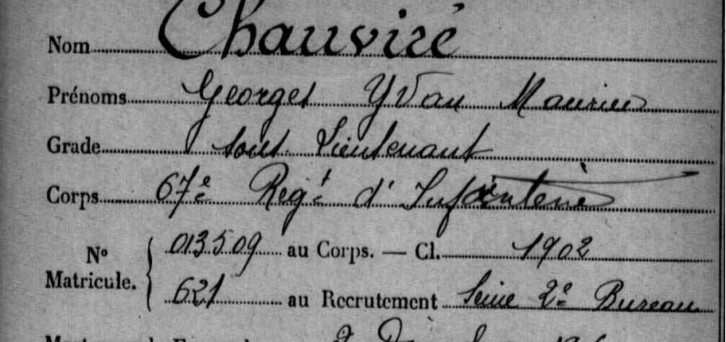 Nom Chauviré
Prénoms Georges Yvan Maurice
Grade sous Lieutenant
Corps 67e Regt d'Infanterie
No Matricule. 013509 au Corps. — Cl. 1902
621 au Recrutement Seine 2e Bureau